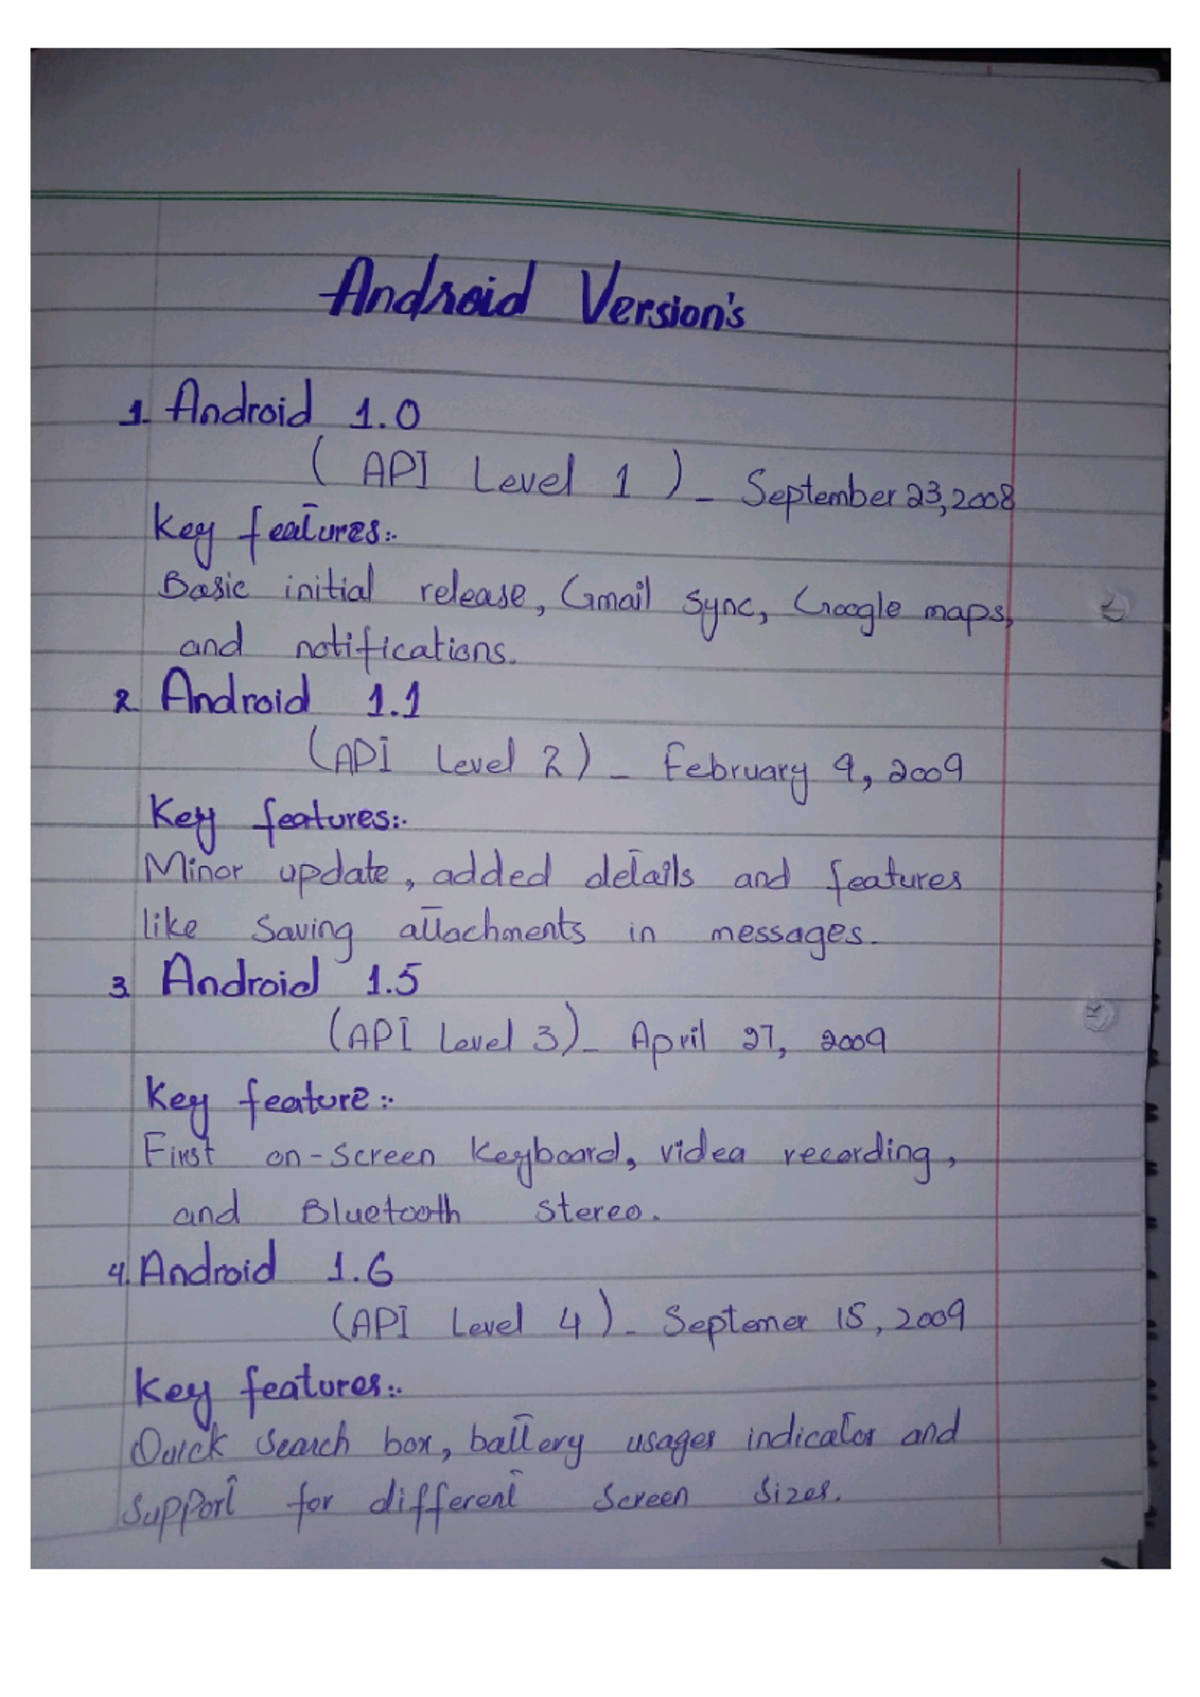 Android Version's
1. Android 1.0
( API Level 1 ) - September 23, 2008
Key features:-
Basic initial release, Gmail sync, Google maps,
and notifications.
2. Android 1.1
(API Level 2) - February 9, 2009
Key features:-
Minor update, added details and features
like saving attachments in messages.
3. Android 1.5
(API Level 3) - April 27, 2009
Key feature:-
First on-screen keyboard, videa recording,
and Bluetooth stereo.
4. Android 1.6
(API Level 4) - Septemer 15, 2009
Key features:-
Quick search box, battery usages indicator and
support for different screen sizes.